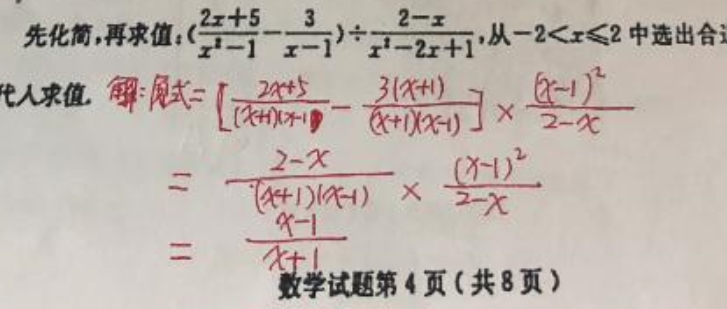 先化简,再求值:(\frac{2x+5}{x²-1}-\frac{3}{x-1})÷\frac{2-x}{x²-2x+1},从-2<x≤2中选出合
代入求值. 解:原式=[\frac{2x+5}{(x+1)(x-1)}-\frac{3(x+1)}{(x+1)(x-1)}]×\frac{(x-1)²}{2-x}
=\frac{2-x}{(x+1)(x-1)}×\frac{(x-1)²}{2-x}
=\frac{x-1}{x+1}
数学试题第4页(共8页)